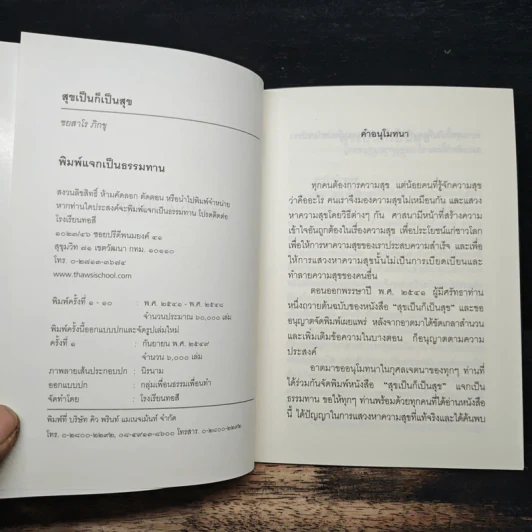 สุขเป็นก็เป็นสุข
ชยสาโร ภิกขุ
พิมพ์แจกเป็นธรรมทาน
สงวนลิขสิทธิ์ ห้ามคัดลอก ตัดตอน หรือนำไปพิมพ์จำหน่าย
หากท่านใดประสงค์จะพิมพ์แจกเป็นธรรมทาน โปรดติดต่อ
โรงเรียนทอสี
๑๐๒๓/๔๖ ซอยปรีดีพนมยงค์ ๔๑
สุขุมวิท ๗๑ เขตวัฒนา กทม. ๑๐๑๑๐
โทร. ๐-๒๗๑๓-๓๖๗๔
www.thawsischool.com
พิมพ์ครั้งที่ ๑ - ๑๐ : พ.ศ. ๒๕๔๑ - พ.ศ. ๒๕๔๘
จำนวนประมาณ ๖๐,๐๐๐ เล่ม
พิมพ์ครั้งนี้ออกแบบปกและจัดรูปเล่มใหม่
ครั้งที่ ๑ : กันยายน พ.ศ. ๒๕๔๙
จำนวน ๖,๐๐๐ เล่ม
ภาพลายเส้นประกอบปก : นิรนาม
ออกแบบปก : กลุ่มเพื่อนธรรมเพื่อนทำ
จัดทำโดย : โรงเรียนทอสี
พิมพ์ที่ บริษัท คิว พริ้นท์ แมเนจเม้นท์ จำกัด
คำอนุโมทนา
ทุกคนต้องการความสุข แต่น้อยคนที่รู้จักความสุข
ว่าคืออะไร คนเราจึงมองความสุขไม่เหมือนกัน และแสวง
หาความสุขโดยวิธีต่างๆ กัน ศาสนามีหน้าที่สร้างความ
เข้าใจอันถูกต้องในเรื่องความสุข เพื่อประโยชน์แก่ชาวโลก
เพื่อให้การหาความสุขของเราประสบความสำเร็จ และเพื่อ
ให้การแสวงหาความสุขนั้นไม่เป็นการเบียดเบียนและ
ทำลายความสุขของคนอื่น
ตอนออกพรรษาปี พ.ศ. ๒๕๔๑ ผู้มีศรัทธาท่าน
หนึ่งถวายต้นฉบับของหนังสือ "สุขเป็นก็เป็นสุข" และขอ
อนุญาตจัดพิมพ์เผยแพร่ หลังจากอาตมาได้ขัดเกลาสำนวน
และเพิ่มเติมข้อความในบางตอน ก็อนุญาตตามความ
ประสงค์
อาตมาขออนุโมทนาในกุศลเจตนาของทุกๆ ท่านที่
ได้ร่วมกันจัดพิมพ์หนังสือ "สุขเป็นก็เป็นสุข" แจกเป็น
ธรรมทาน ขอให้ทุกๆ ท่านพร้อมด้วยทุกคนที่ได้อ่านหนังสือ
นี้ ได้ปัญญาในการแสวงหาความสุขที่แท้จริงและได้ค้นพบ